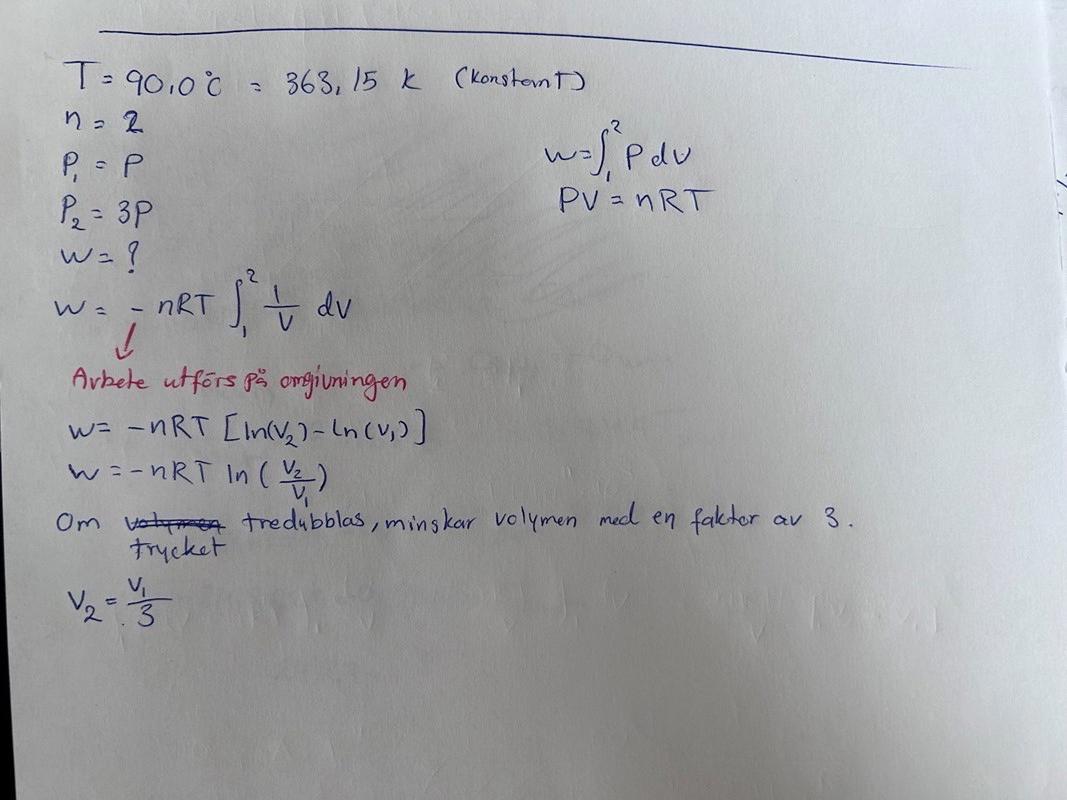 T = 90,0°C = 363,15 K (konstant)
n = 2
P₁ = P
P₂ = 3P
W = ?
W = ∫₁² P dV
PV = nRT
W = - nRT ∫₁² 1/V dV
Arbete utförs på omgivningen
W = -nRT [ln(V₂) - ln(V₁)]
W = -nRT ln (V₂/V₁)
Om volymen tredubblas, minskar volymen med en faktor av 3.
trycket
V₂ = V₁/3